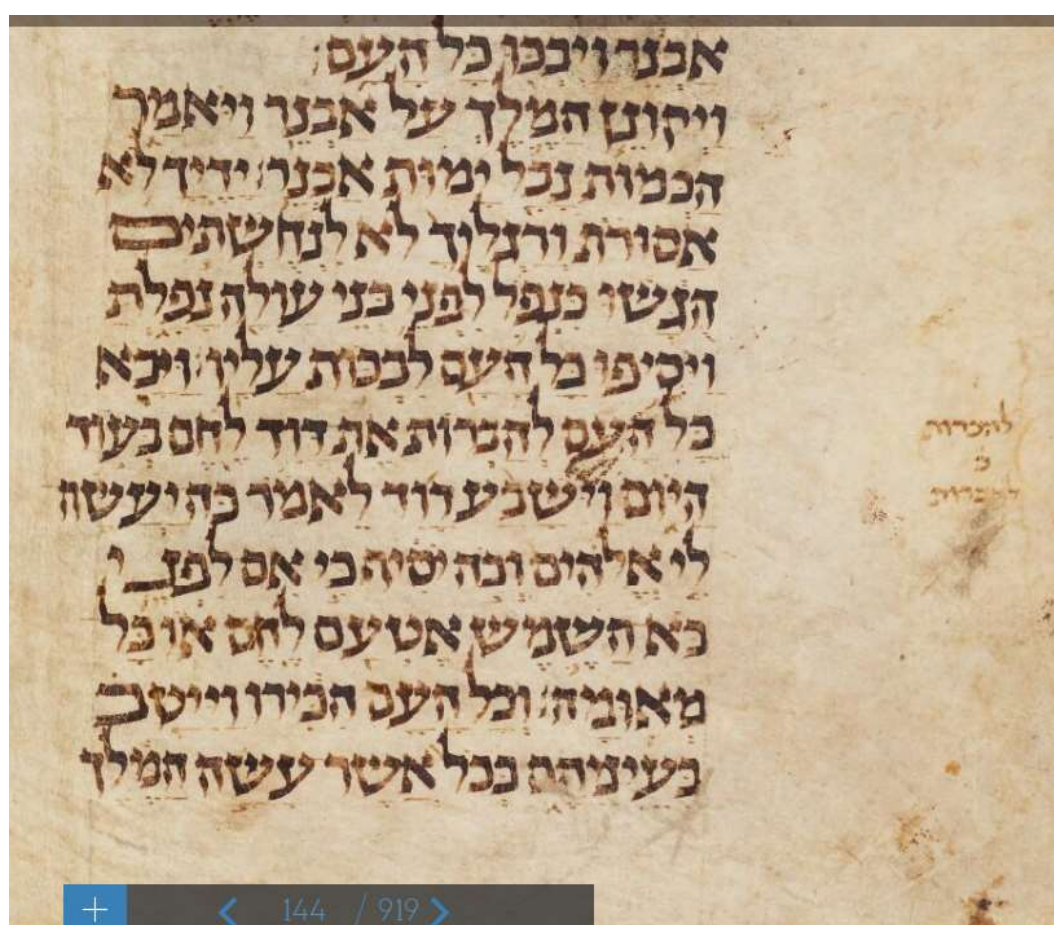 אבנר ויבכו כל העם׃
ויקונן המלך על אבנר ויאמר
הכמות נבל ימות אבנר׃ ידיך לא
אסורת ורגליך לא לנחשתים
הגשו כנפל לפני בני עולה נפלת
ויסיפו כל העם לבכות עליו׃ ויבא
כל העם להברות את דוד לחם בעוד
היום וישבע דוד לאמר כה יעשה
לי אלהים וכה יסיף כי אם לפני
בא השמש אטעם לחם או כל
מאומה׃ וכל העם הכירו וייטב
בעיניהם ככל אשר עשה המלך
להכרות
144 / 919